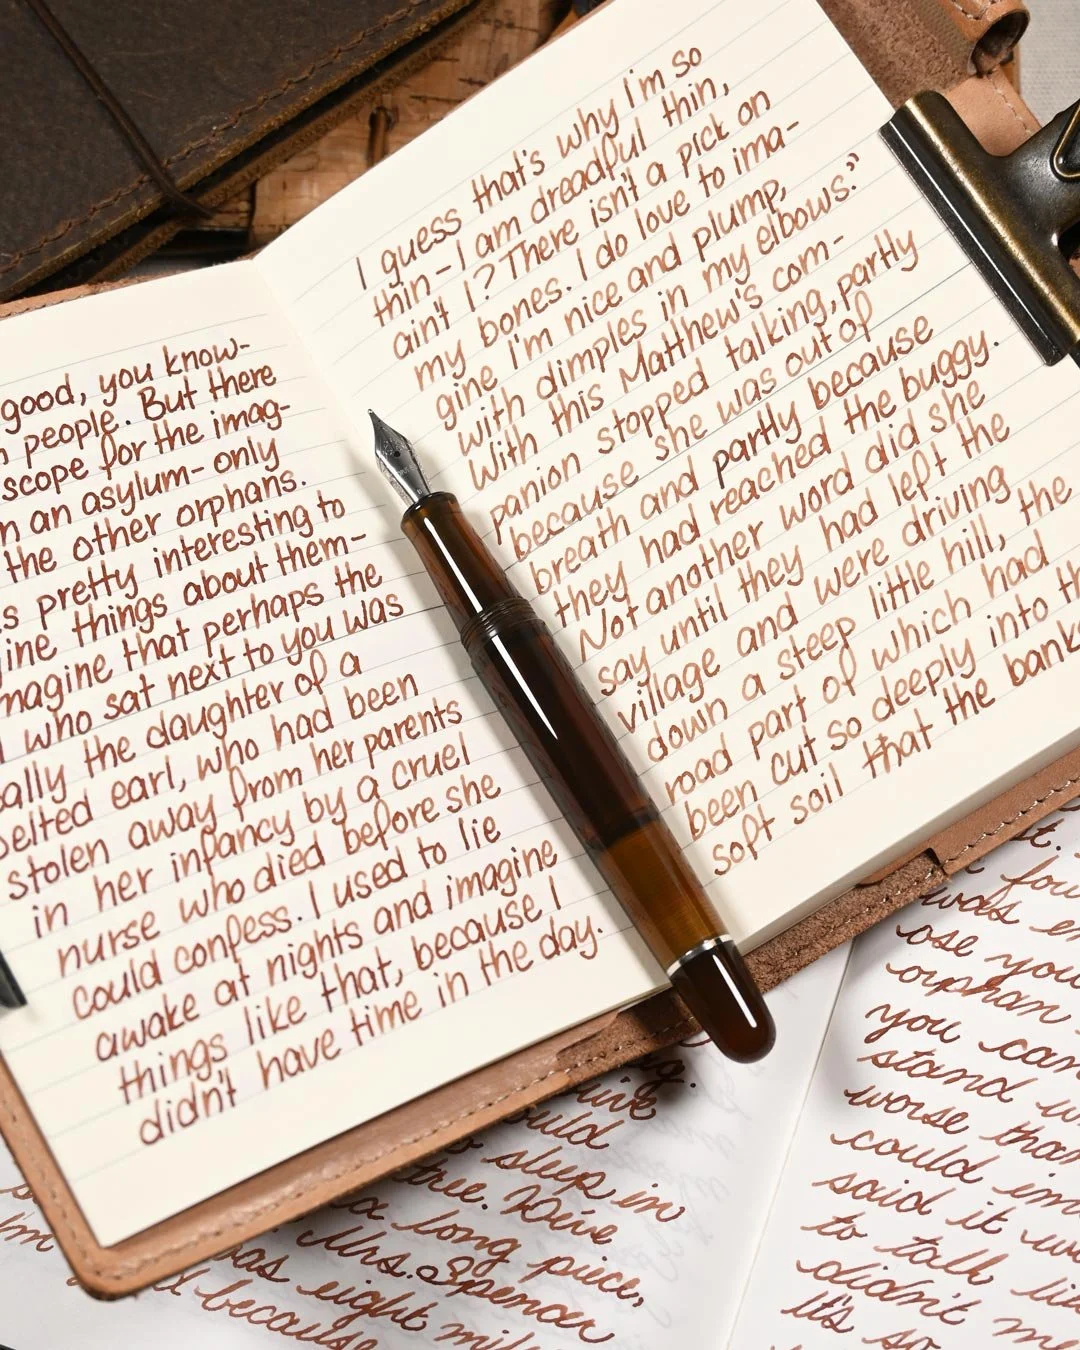 good, you know-
people. But there
scope for the imag-
an asylum-only
the other orphans.
pretty interesting to
things about them-
that perhaps the
who sat next to you was
the daughter of a
belted earl, who had been
stolen away from her parents
in her infancy by a cruel
nurse who died before she
could confess. I used to lie
awake at nights and imagine
things like that, because I
didn't have time in the day.
I guess that's why I'm so
thin-I am dreadful thin,
ain't I? There isn't a pick on
my bones. I do love to ima-
gine I'm nice and plump,
with dimples in my elbows."
With this Matthew's com-
panion stopped talking, partly
because she was out of
breath and partly because
they had reached the buggy.
Not another word did she
say until they had left the
village and were driving
down a steep little hill, the
road part of which had
been cut so deeply into
soft soil that the banks
sleep in
tree. We've
a long piece,
Mrs. Spencer
was eight
because
you
orphan
you can
stand
worse than
could
said it
to talk
didn't
It's so